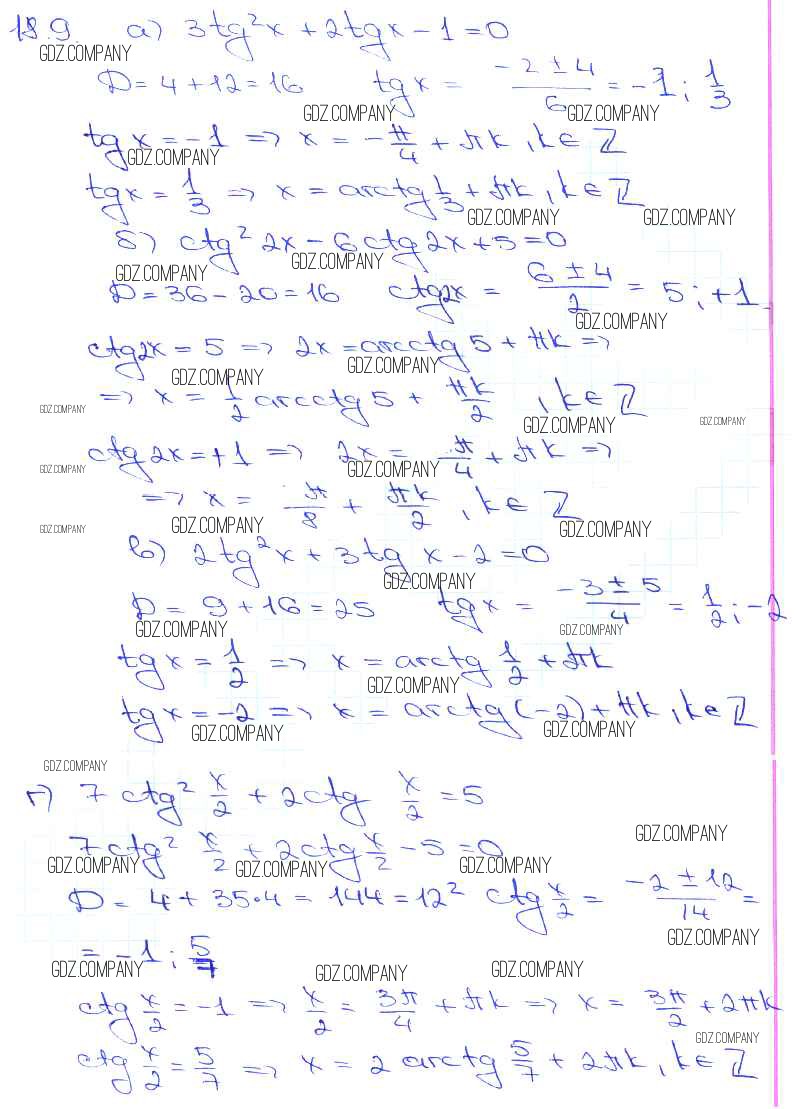 18.9. а) 3tg²x + 2tgx − 1 = 0
GDZ.COMPANY
D = 4 + 12 = 16 tg x = (−2 ± 4)/6 = −1; 1/3
GDZ.COMPANY GDZ.COMPANY
tg x = −1 => x = −π/4 + πk, k ∈ Z
GDZ.COMPANY
tg x = 1/3 => x = arctg 1/3 + πk, k ∈ Z
GDZ.COMPANY GDZ.COMPANY
б) ctg² 2x − 6ctg 2x + 5 = 0
GDZ.COMPANY GDZ.COMPANY
D = 36 − 20 = 16 ctg2x = (6 ± 4)/2 = 5; +1
GDZ.COMPANY
ctg2x = 5 => 2x = arcctg 5 + πk =>
GDZ.COMPANY GDZ.COMPANY
=> x = 1/2 arcctg 5 + πk/2, k ∈ Z
GDZ.COMPANY GDZ.COMPANY GDZ.COMPANY
ctg 2x = +1 => 2x = π/4 + πk =>
GDZ.COMPANY GDZ.COMPANY
=> x = π/8 + πk/2, k ∈ Z
GDZ.COMPANY GDZ.COMPANY GDZ.COMPANY
в) 2tg²x + 3tg x − 2 = 0
GDZ.COMPANY
D = 9 + 16 = 25 tgx = (−3 ± 5)/4 = 1/2; −2
GDZ.COMPANY GDZ.COMPANY
tg x = 1/2 => x = arctg 1/2 + πk
GDZ.COMPANY
tg x = −2 => x = arctg(−2) + πk, k ∈ Z
GDZ.COMPANY GDZ.COMPANY
GDZ.COMPANY
г) 7 ctg² x/2 + 2ctg x/2 = 5
GDZ.COMPANY
7ctg² x/2 + 2ctg x/2 − 5 = 0
GDZ.COMPANY GDZ.COMPANY GDZ.COMPANY
D = 4 + 35·4 = 144 = 12² ctg x/2 = (−2 ± 12)/14 =
GDZ.COMPANY
= −1; 5/7
GDZ.COMPANY GDZ.COMPANY GDZ.COMPANY
ctg x/2 = −1 => x/2 = 3π/4 + πk => x = 3π/2 + 2πk
GDZ.COMPANY
ctg x/2 = 5/7 => x = 2 arcctg 5/7 + 2πk, k ∈ Z